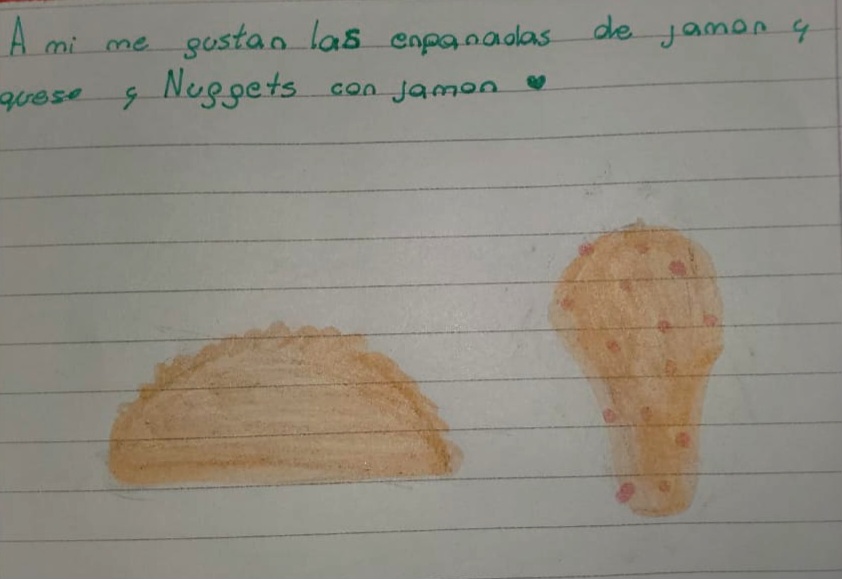 A mi me gustan las enpanadas de jamon y
queso y Nuggets con jamon ♥